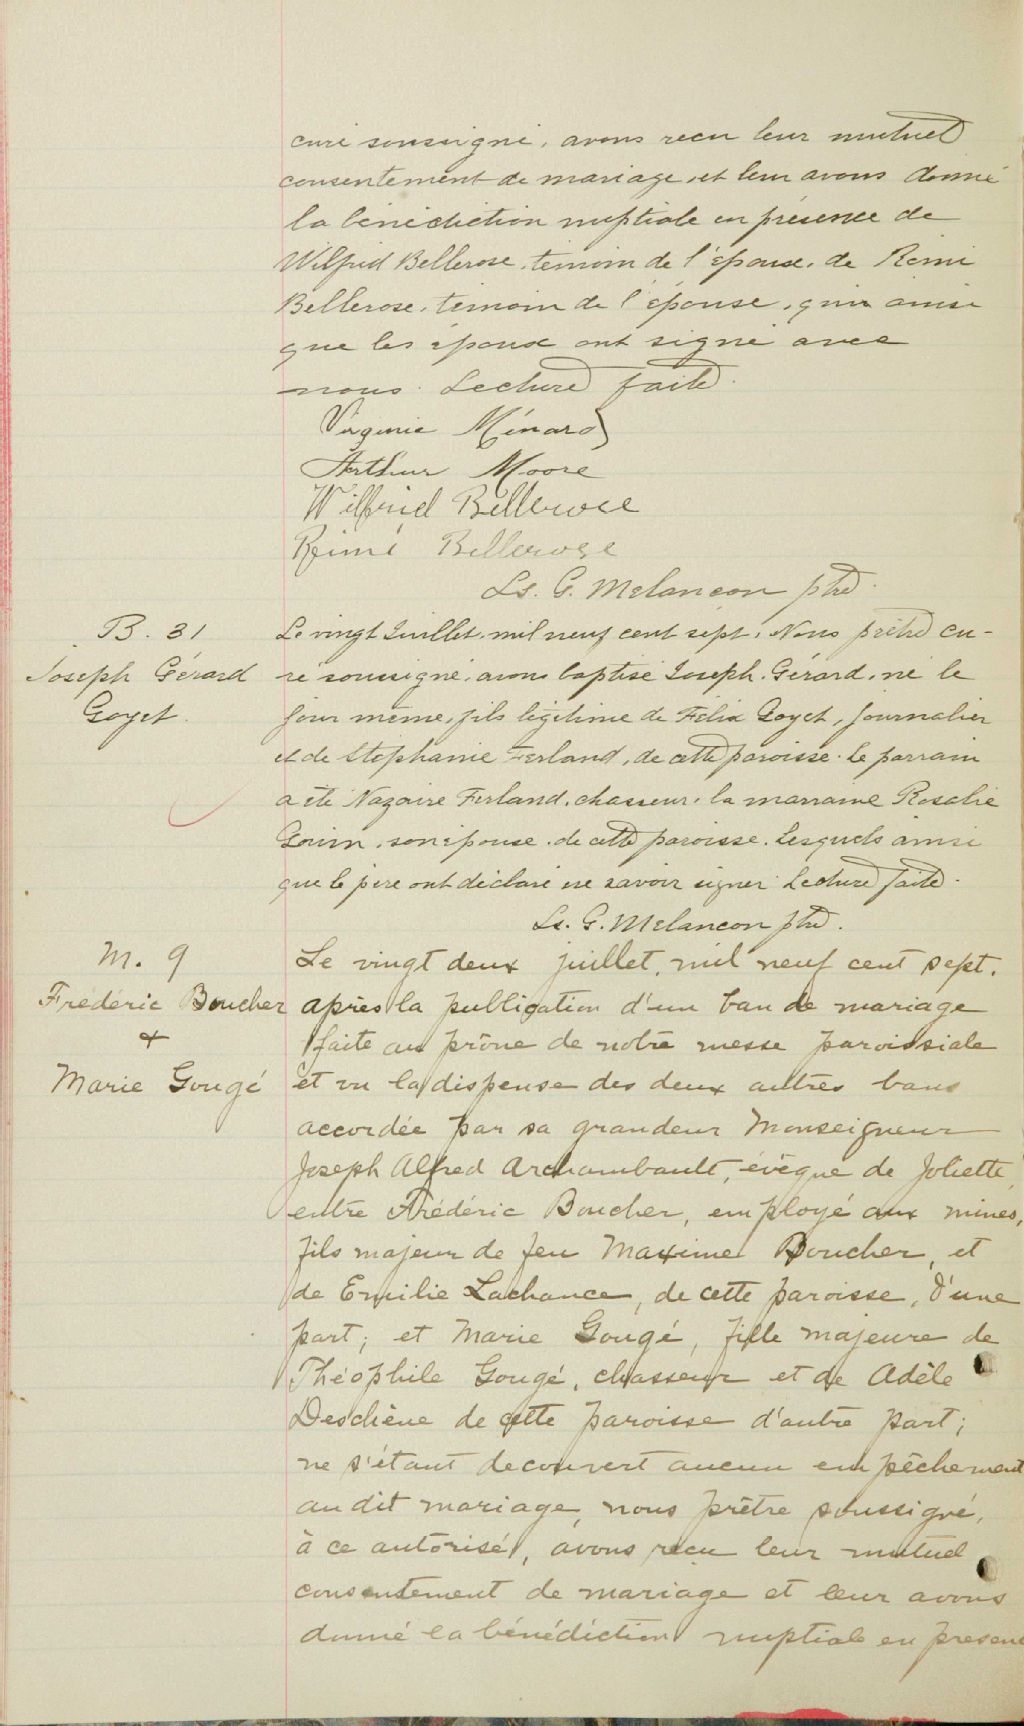 curé soussigné, avons recu leur mutuel
consentement de mariage, et leur avons donné
la bénédiction nuptiale en présence de
Wilfrid Bellerose, témoin de l'époux, de Rémi
Bellerose, témoin de l'épouse, qui ainsi
que les époux ont signé avec
nous. Lecture faite.
Virginie Ménard
Arthur Moore
Wilfrid Bellerose
Reimé Bellerose
Ls. G. Melançon ptre.
B. 31
Joseph Gérard
Goyet.
Le vingt Juillet, mil neuf cent sept, Nous prêtre cu-
ré soussigné, avons baptisé Joseph, Gérard, né le
jour même, fils légitime de Félix Goyet, journalier
et de Stéphanie Ferland, de cette paroisse. Le parrain
a été Nazaire Ferland, chasseur, la marraine Rosalie
Gouin, son épouse, de cette paroisse. Lesquels ainsi
que le père ont déclaré ne savoir signer. Lecture faite.
Ls. G. Melançon ptre.
M. 9
Frédéric Boucher
+
Marie Gougé
Le vingt deux juillet, mil neuf cent sept,
après la publication d'un ban de mariage
faite au prône de notre messe paroissiale
et vu la dispense des deux autres bans
accordée par sa grandeur Monseigneur
Joseph Alfred Archambault, évêque de Joliette,
entre Frédéric Boucher, employé aux mines,
fils majeur de feu Maxime Boucher, et
de Emilie Lachance, de cette paroisse, d'une
part; et Marie Gougé, fille majeure de
Théophile Gougé, chasseur et de Adèle
Deschêne de cette paroisse d'autre part;
ne s'étant decouvert aucun empêchement
au dit mariage, nous prêtre soussigné,
à ce autorisé, avons reçu leur mutuel
consentement de mariage et leur avons
donné la bénédiction nuptiale en presence